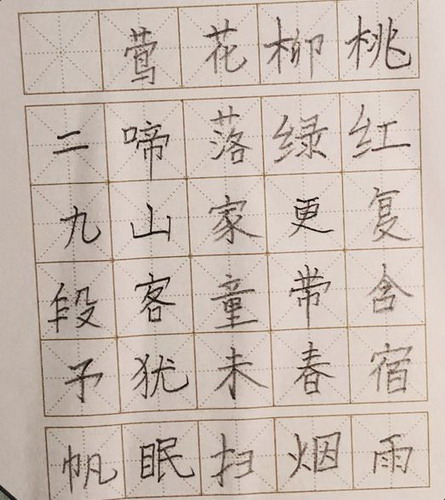 桃红复含宿雨
柳绿更带春烟
花落家童未扫
莺啼山客犹眠
二九段予帆